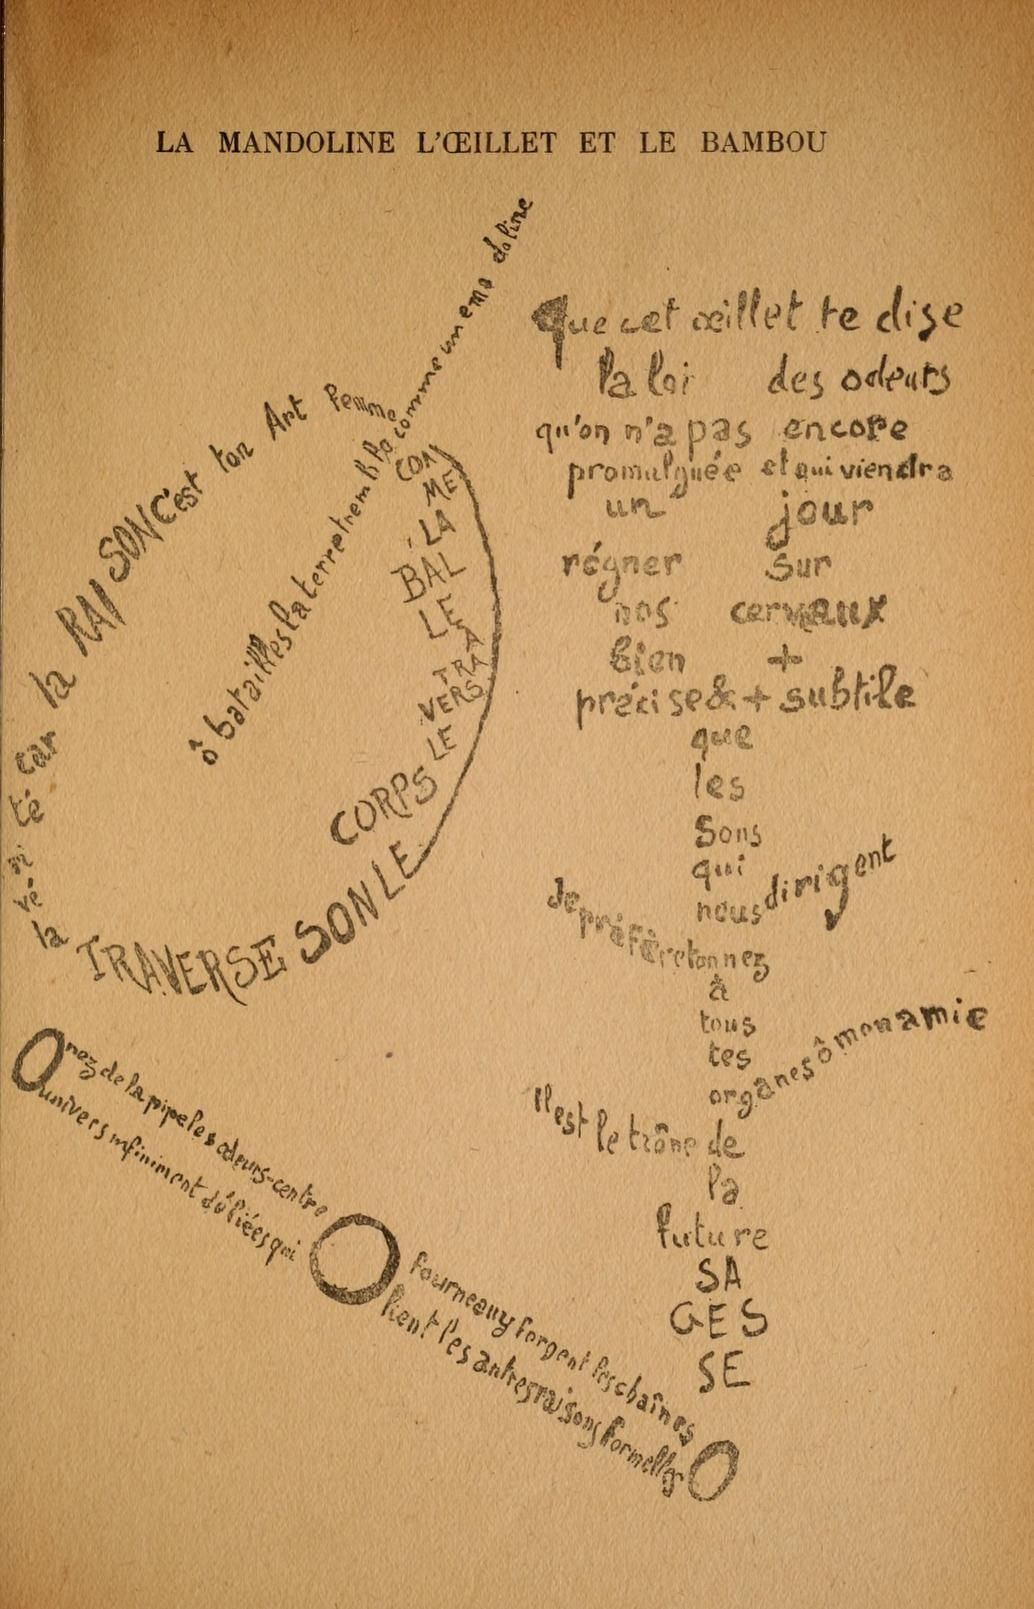 LA MANDOLINE L'ŒILLET ET LE BAMBOU
ô batailles la terre tremble comme une mandoline
COM
ME
LA
BAL
LE
TRA
VERS
LE
CORPS
LE
SON
TRAVERSE
la
vé
ri
té
car
la
RAI
SON
C'est
ton
Art
Femme
Que cet œillet te dise
la loi des odeurs
qu'on n'a pas encore
promulguée et qui viendra
un jour
régner sur
nos cerveaux
bien +
précise & + subtile
que
les
Sons
qui
nous dirigent
Je préfère ton nez
à
tous
tes
organes ô mon amie
Il est le trône de
la
future
SA
GES
SE
O nez de la pipe les odeurs-centre
O fourneau y forgent les chaînes
univers infiniment déliées qui
lient les autres raisons formelles
O